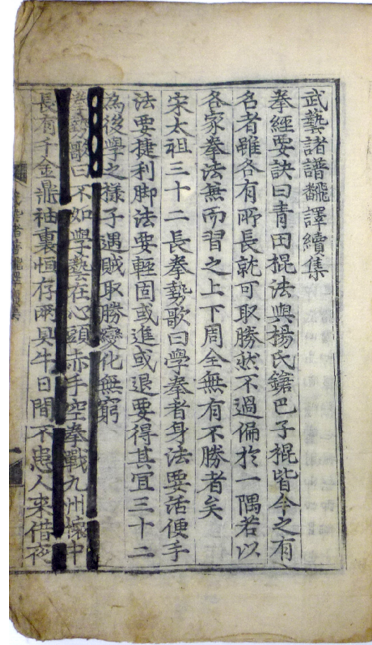 武藝諸譜飜譯續集
拳經要訣曰青田棍法與楊氏鎗巴子棍皆今之有
名者雖各有所長就可取勝然不過偏於一隅若以
各家拳法無而習之上下周全無有不勝者矣
宋太祖三十二長拳勢歌曰學拳者身法要活便手
法要捷利脚法要輕固或進或退要得其宜三十二
為後學之樣子遇賊取勝變化無窮
勢歌曰不如學藝在心頭赤手空拳戰九州
長有千金鼎袖裏恒存兩具牛日間不患人來借夜